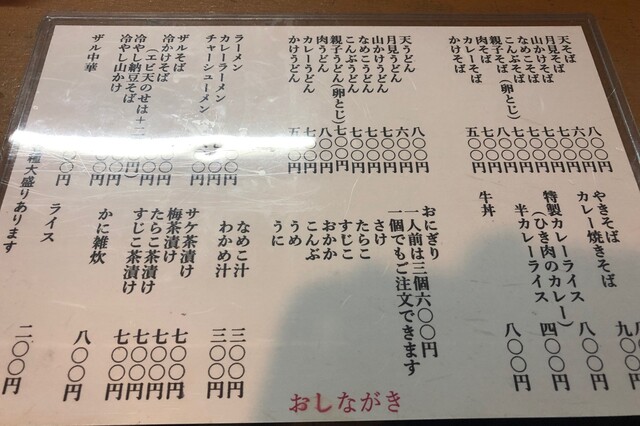 天そば 八〇〇円
月見そば 六〇〇円
山かけそば 七〇〇円
なめこそば 七〇〇円
こんぶそば 七〇〇円
親子そば（卵とじ） 七〇〇円
肉そば 八〇〇円
カレーそば 七〇〇円
かけそば 五〇〇円
天うどん 八〇〇円
月見うどん 六〇〇円
山かけうどん 七〇〇円
なめこうどん 七〇〇円
こんぶうどん 七〇〇円
親子うどん（卵とじ） 七〇〇円
肉うどん 八〇〇円
カレーうどん 七〇〇円
かけうどん 五〇〇円
ラーメン
カレーラーメン
チャーシューメン
ザルそば
冷かけそば
（エビ天のせは＋二〇〇円）
冷やし納豆そば
冷やし山かけ
ザル中華
大盛りあります 二〇〇円
やきそば 八〇
カレー焼きそば 九〇〇
特製カレーライス 八〇〇円
（ひき肉のカレー）
半カレーライス 四〇〇円
牛丼 八〇〇円
おにぎり
一人前は三個六〇〇円
一個でもご注文できます
さけ
たらこ
すじこ
おかか
こんぶ
うめ
うに
なめこ汁 三〇〇円
わかめ汁 三〇〇円
サケ茶漬け 七〇〇円
梅茶漬け 七〇〇円
たらこ茶漬け 七〇〇円
すじこ茶漬け 七〇〇円
かに雑炊 八〇〇円
ライス 二〇〇円
おしながき